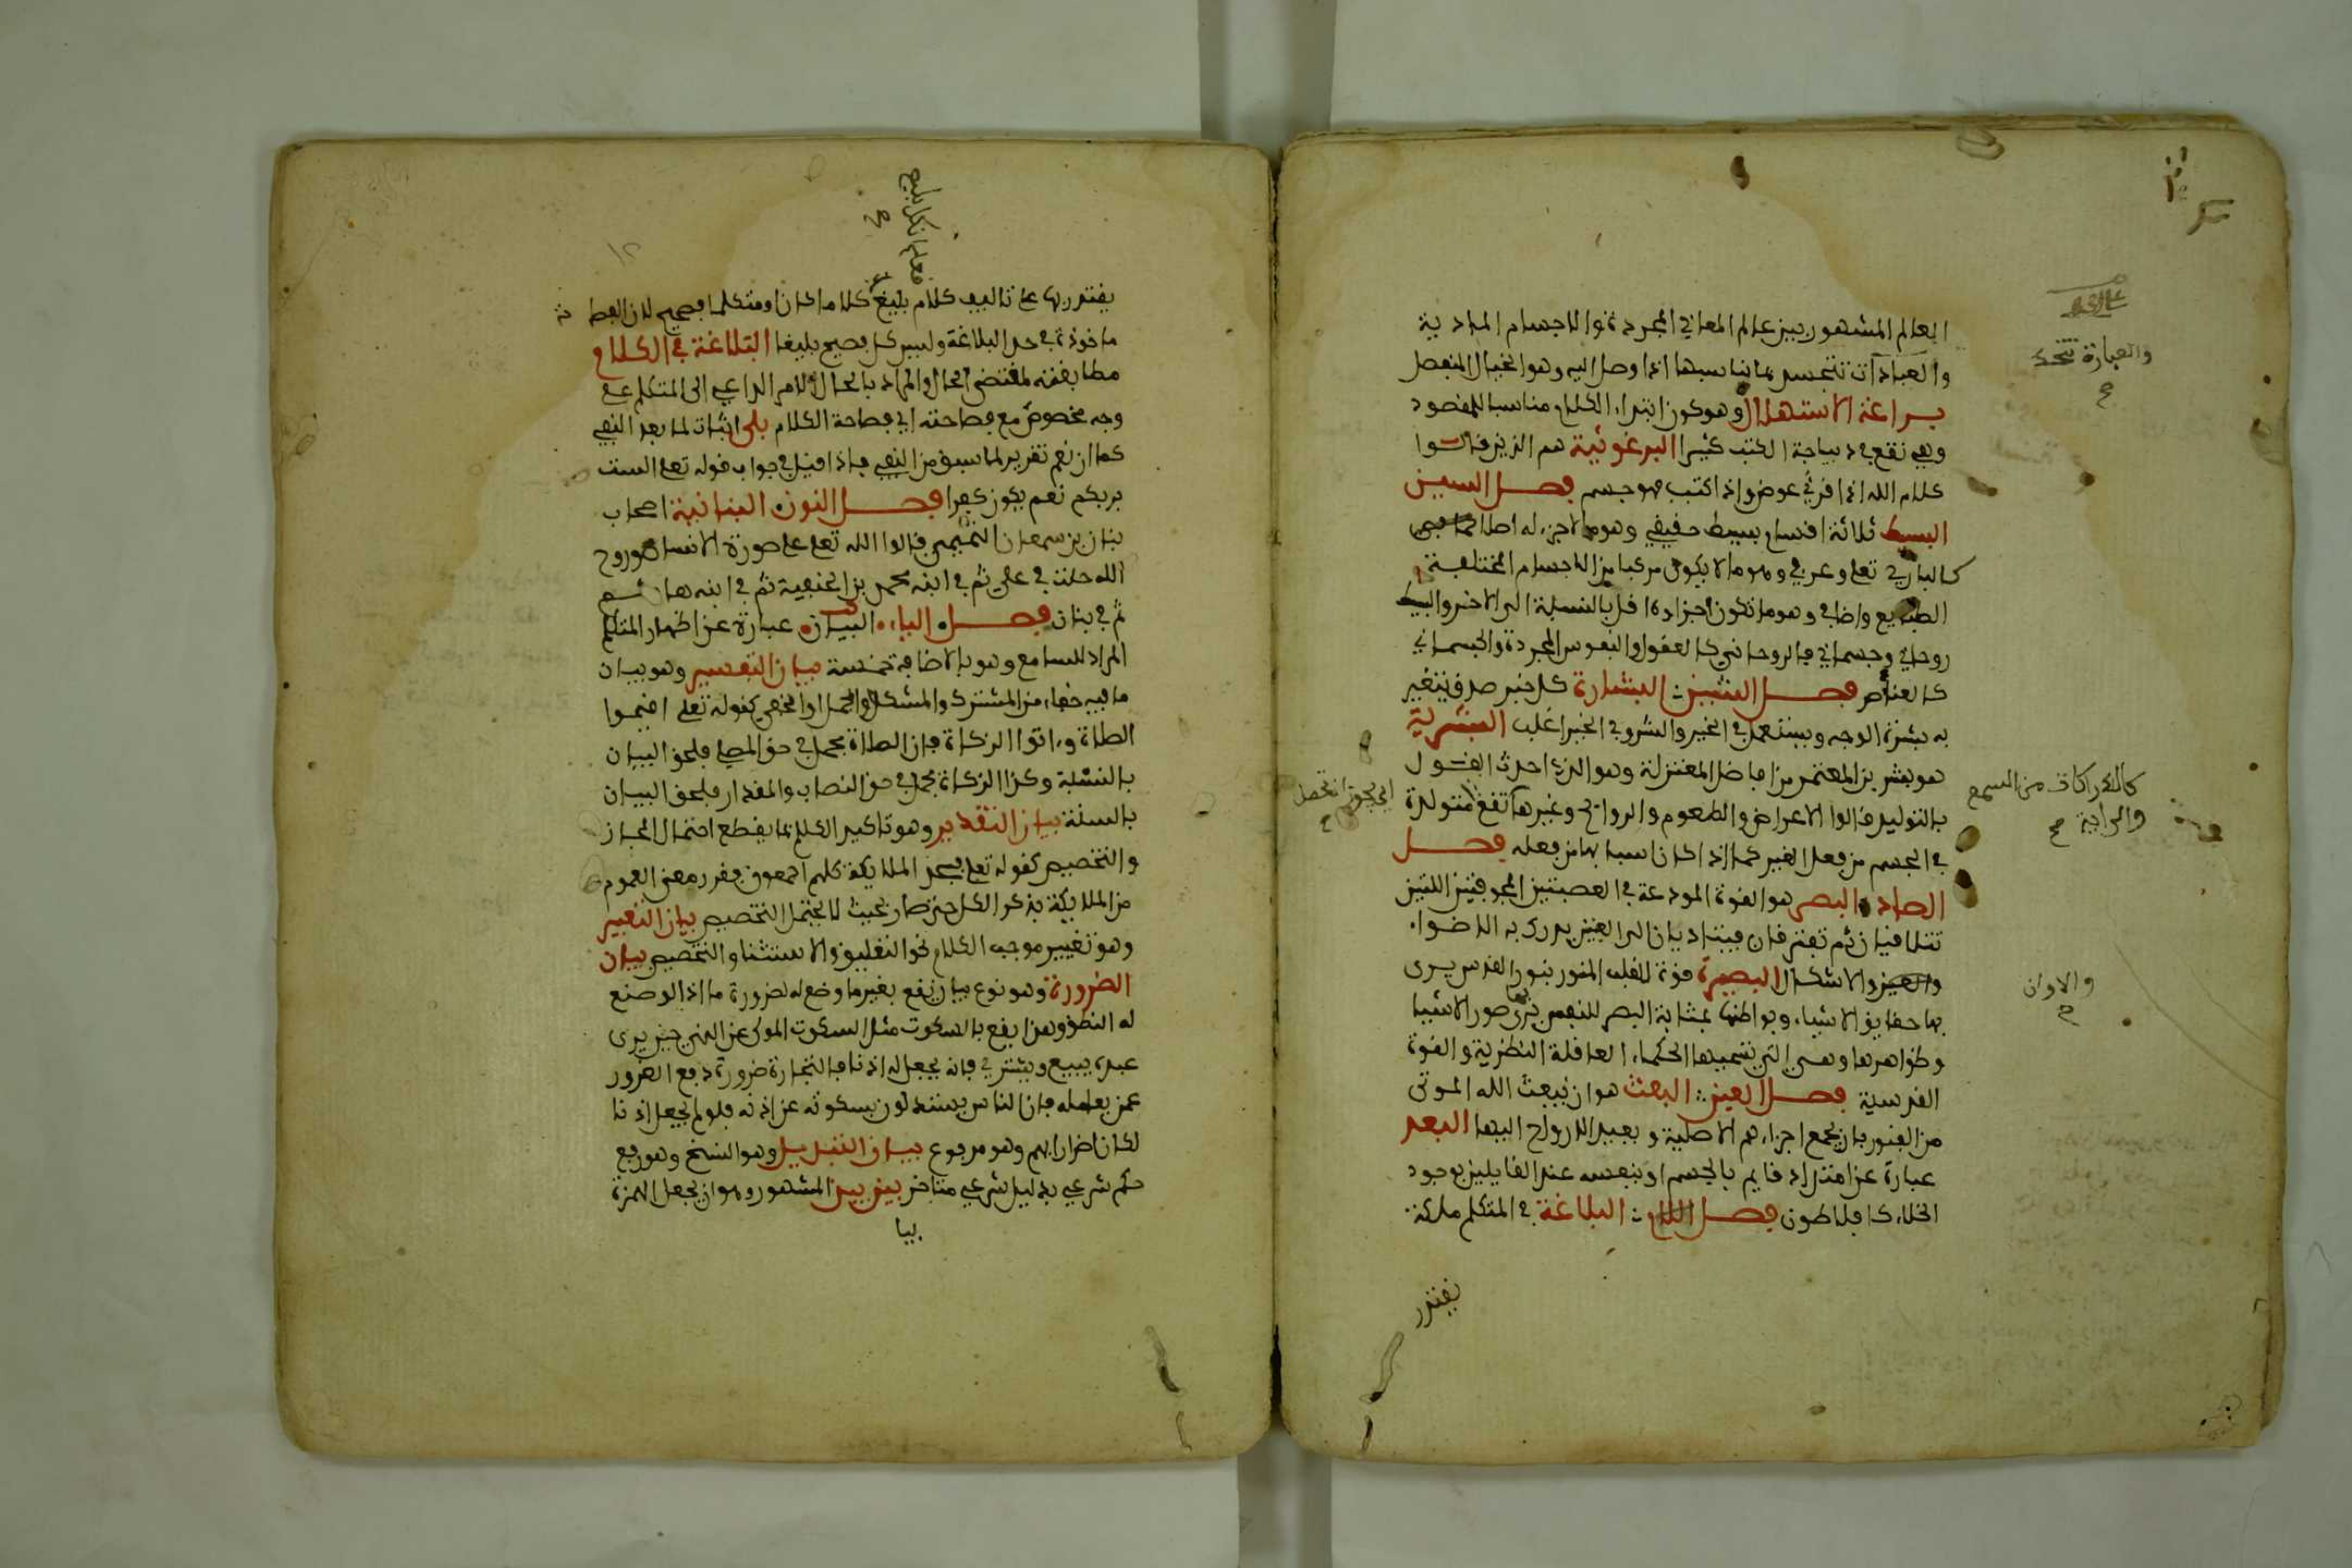 العالم المشهور بين عالم المعاني المجردة والاجسام المادية
والعبادات تتجسد بما يناسبها اذا وصل اليه وهو الخيال المنفصل
براعة الاستهلال وهو كون ابتداء الكلام مناسبا للمقصود
وهي تقع في ديباجة الكتب كثيرا البرغوثية هم الذين قالوا
كلام الله اذا قرئ عوض واذا كتب فهو جسم فصل السين
البسيط ثلاثة اقسام بسيط حقيقي وهو ما لا جزء له اصلا
كالباري تعلى وعرفي وهو ما لا يكون مركبا من الاجسام المختلفة
الطبايع واضافي وهو ما تكون اجزاءه اقل بالنسبة الى الاخر والبسيط
روحاني وجسماني فالروحاني كالعقول والنفوس المجردة والجسماني
كالعناصر فصل الشين البشارة كل خبر صدق يتغير
به بشرة الوجه ويستعمل في الخير والشر وفي الخير اغلب البشرية
هو بشر بن المعتمر من افاضل المعتزلة وهو الذي احدث القول
بالتوليد قالوا الاعراض والطعوم والروايح وغيرها تقع متولدة
في الجسم من فعل الغير كما اذا كان اسبابها من فعله فصل
الصاد البصر هو القوة المودعة في العصبتين المجوفتين اللتين
تتلاقيان ثم تفترقان فيتاديان الى العين يدرك به الاضواء
والاشكال البصيرة قوة للقلب المنور بنور القدس يرى
بها حقايق الاشياء وبواطنها بمثابة البصر للنفس يرى به صور الاشيا
وظواهرها وهي التي يسميها الحكماء العاقلة النظرية والقوة
القدسية فصل العين البعث هو ان يبعث الله الموتى
من القبور بان يجمع اجزاءهم الاصلية ويعيد الارواح اليها البعد
عبارة عن امتداد قايم بالجسم او بنفسه عند القايلين بوجود
الخلاء كافلاطون فصل اللام البلاغة في المتكلم ملكة
يقتدر
والعبارة
كالادراكات من السمع
والالوان
يقتدر بها على تاليف كلام بليغ كلاما كان او متكلما فصيح لان الفصا
ماخوذة في حد البلاغة وليس كل فصيح بليغا البلاغة في الكلام
مطابقته لمقتضى الحال والمراد بالحال الامر الداعي الى المتكلم على
وجه مخصوص مع فصاحته اي فصاحة الكلام بلى اثبات لما بعد النفي
كما ان نعم تقرير لما سبق من النفي فاذا قيل في جواب قوله تعلى الست
بربكم نعم يكون كفرا فصل النون البنانية اصحاب
بنان بن سمعان التميمي قالوا الله تعلى على صورة الانسان وروح
الله حلت في علي ثم في ابنه محمد بن الحنفية ثم في ابنه هاشم
ثم في بنان فصل الياء البيان عبارة عن اظهار المتكلم
المراد للسامع وهو بالاضافة خمسة بيان التفسير وهو بيان
ما فيه خفاء من المشترك والمشكل والمجمل او الخفي كقوله تعلى اقيموا
الصلاة وءاتوا الزكاة فان الصلاة مجمل في حق المصلي فلحق البيان
بالسنة وكذا الزكاة مجمل في حق النصاب والمقدار فلحق البيان
بالسنة بيان التقدير وهو تاكيد الكلام بما يقطع احتمال المجاز
والتخصيص كقوله تعلى فسجد الملايكة كلهم اجمعون فقرر معنى العموم
من الملايكة بذكر الكل حتى صار بحيث لا يحتمل التخصيص بيان التغيير
وهو تغيير موجب الكلام نحو التعليق والاستثناء والتخصيص بيان
الضرورة وهو نوع بيان يقع بغير ما وضع له لضرورة ما اذ الموضع
له النطق وهذا يقع بالسكوت مثل السكوت المولى عن النهي حين يرى
عبده يبيع ويشتري فانه يجعل له اذنا في التجارة ضرورة دفع الغرور
عمن يعامله فان الناس يستدلون بسكوته عن اذنه فلو لم يجعل اذنا
لكان اضرارا بهم وهو مدفوع بيان التبديل وهو النسخ وهو رفع
حكم شرعي بدليل شرعي متاخر بين بين المشهور وهو ان يجعل الهمزة
بيا